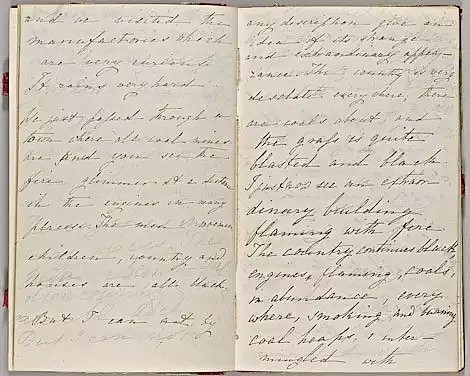 and we visited the
manufactories which
are very curious.
It rains very hard.
We just passed through a
town where all coal mines
are and you see the
fire glimmer at a distance
in the engines in many
places. The men, women,
children, country and
houses are all black.
But I can not by
But I can not
any description give an
idea of its strange
and extraordinary appea-
rance. The country is very
desolate every where; there
are coals about, and
the grass is quite
blasted and black.
I just now see an extraor
dinary building
flaming with fire.
The country continues black,
engines, flaming, coals,
in abundance, every
where, smoking and burning
coal heaps, inter-
mingled with